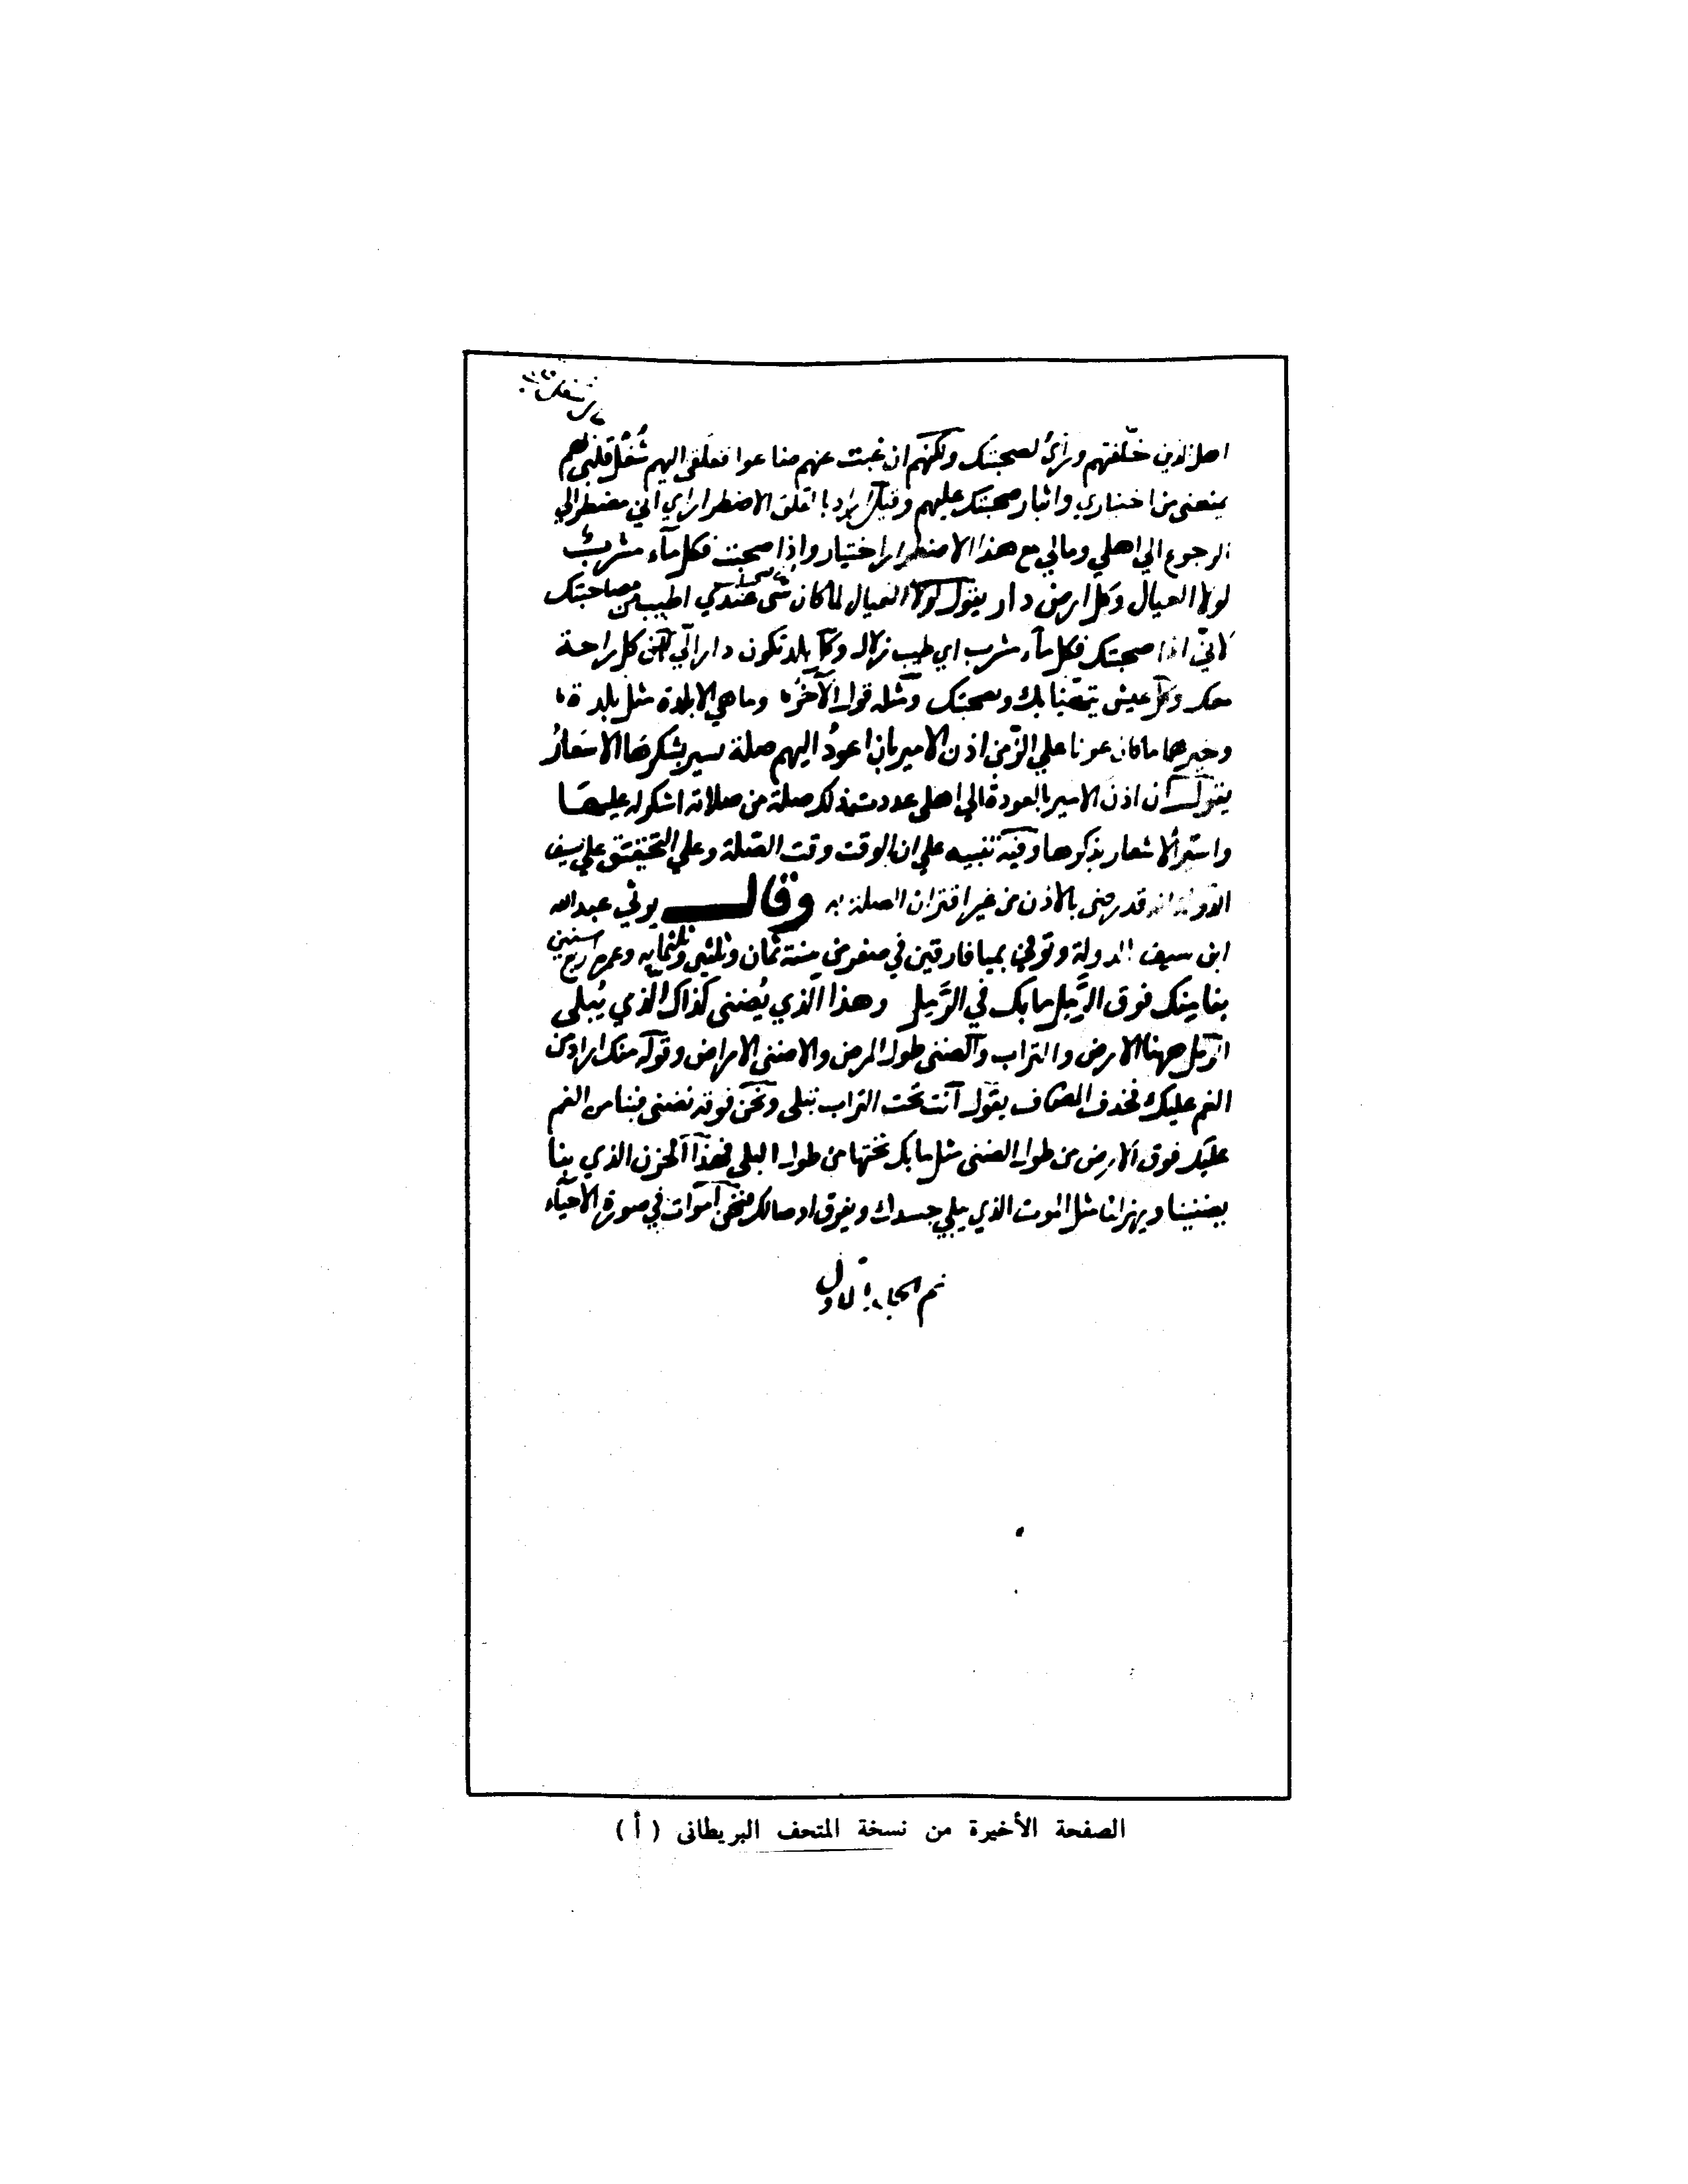 اهلي الذين خلفتهم ورائي لصحبتك ولكنهم ان غبت عنهم ضاعوا فعلقي اليهم شغل قلبي بهم
يمنعني من اختياري وايثار صحبتك عليهم وقيل اراد با لقلق الاضطرار اي اني مضطر الي
الرجوع الي اهلي ومالي مع هذا الاضطرار اختيار واذا صحبت فكل مآء مشرب
لولا العيال وكل ارض دار يقول لولا العيال لما كان شي عندي اطيب من مصاحبتك
لانّي اذا صحبتك فكل مآء مشرب اي طيب زلال وكل بلد تكون داراً لي كل راحة
معك وكل عيش بك وصحبتك ومثله قول الآخر وما هي الا بلدة مثل بلدة
وخيرها ما كان عونا علي الزمن اذن الامير بان اعود اليهم صلة تسير بشكرها الاشعار
يقول ان اذن الامير بالعودة الي اهلي عددت ذلك صلة من صلاته اشكره عليها
واسير الاشعار بذكرها وفيه تنبيه علي ان الوقت وقت الصلة وعلي التحقيق علي سيف
الدولة انه قد رضي بالاذن من غير اقتران الصلة به وقال يرثي عبد الله
ابن سيف الدولة وتوفي بميافارقين في صفر من سنة ثمان وثلثين وثلثمايه وعمره سنين
بنا منك فوق الرمل ما بك في الرمل وهذا الذي يُضني كذاك الذي يُبلي
الرمل ههنا الارض والتراب والضنى طول المرض والاضنى الامراض وقوله منك اراد من
الغم عليك فحذف المضاف يقول انت تحت التراب تبلى ونحن فوقه نضنى فبنا من الغم
عليك فوق الارض من طول الضنى مثل ما بك تحتها من طول البلى فهذا الحزن الذي بنا
يضنينا ويهزلنا مثل الموت الذي يبلي جسدك ويفرق اوصالك فنحن اموات في صورة الاحيآء
تم الجلد الاول
الصفحة الأخيرة من نسخة المتحف البريطانى ( أ )